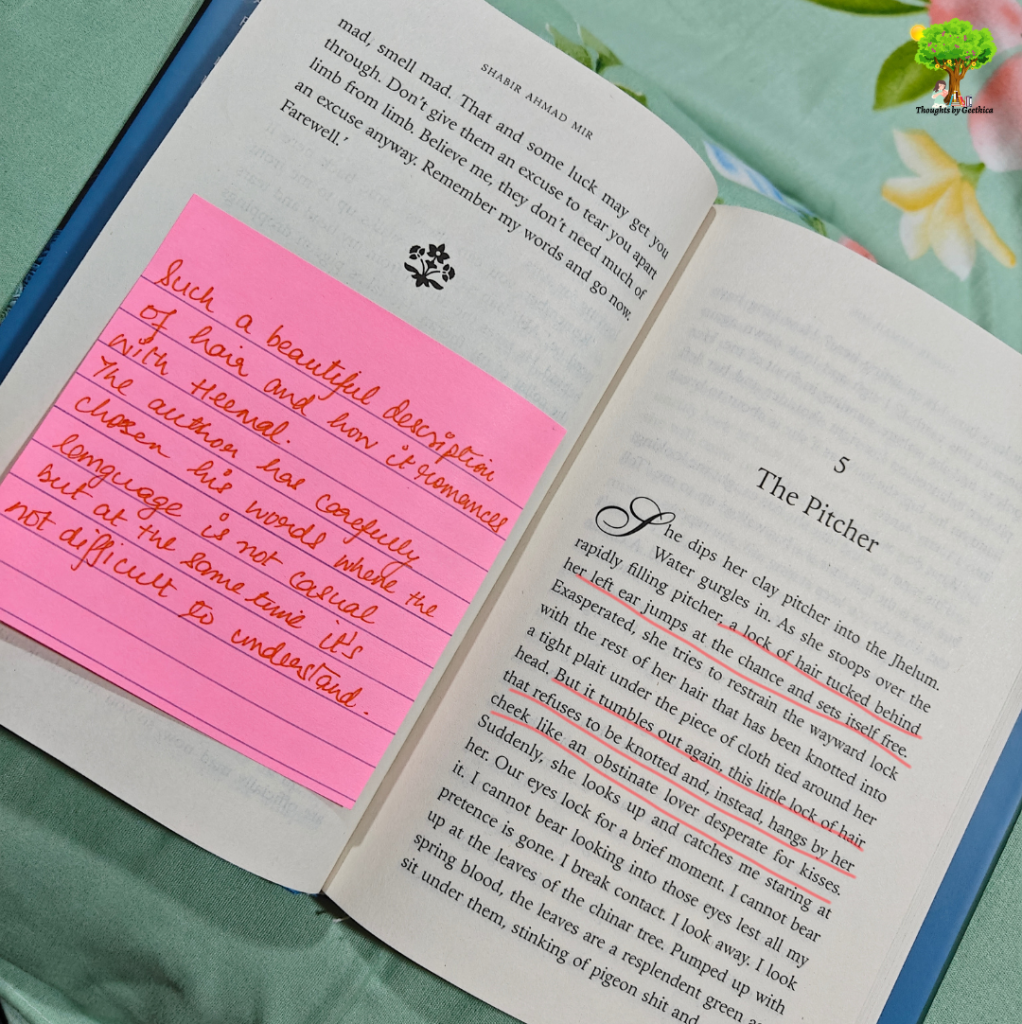 SHABIR AHMAD MIR
mad, smell mad. That and some luck may get you
through. Don't give them an excuse to tear you apart
limb from limb. Believe me, they don't need much of
an excuse anyway. Remember my words and go now.
Farewell.'
Such a beautiful description
of hair and how it romances
with Heemal.
The author has carefully
chosen his words where the
language is not casual
but at the same time it's
not difficult to understand.
5
The Pitcher
She dips her clay pitcher into the Jhelum.
Water gurgles in. As she stoops over the
rapidly filling pitcher, a lock of hair tucked behind
her left ear jumps at the chance and sets itself free.
Exasperated, she tries to restrain the wayward lock
with the rest of her hair that has been knotted into
a tight plait under the piece of cloth tied around her
head. But it tumbles out again, this little lock of hair
that refuses to be knotted and, instead, hangs by her
cheek like an obstinate lover desperate for kisses.
Suddenly, she looks up and catches me staring at
her. Our eyes lock for a brief moment. I cannot bear
it. I cannot bear looking into those eyes lest all my
pretence is gone. I break contact. I look away. I look
up at the leaves of the chinar tree. Pumped up with
spring blood, the leaves are a resplendent green as
sit under them, stinking of pigeon shit and
Thoughts by Geethica